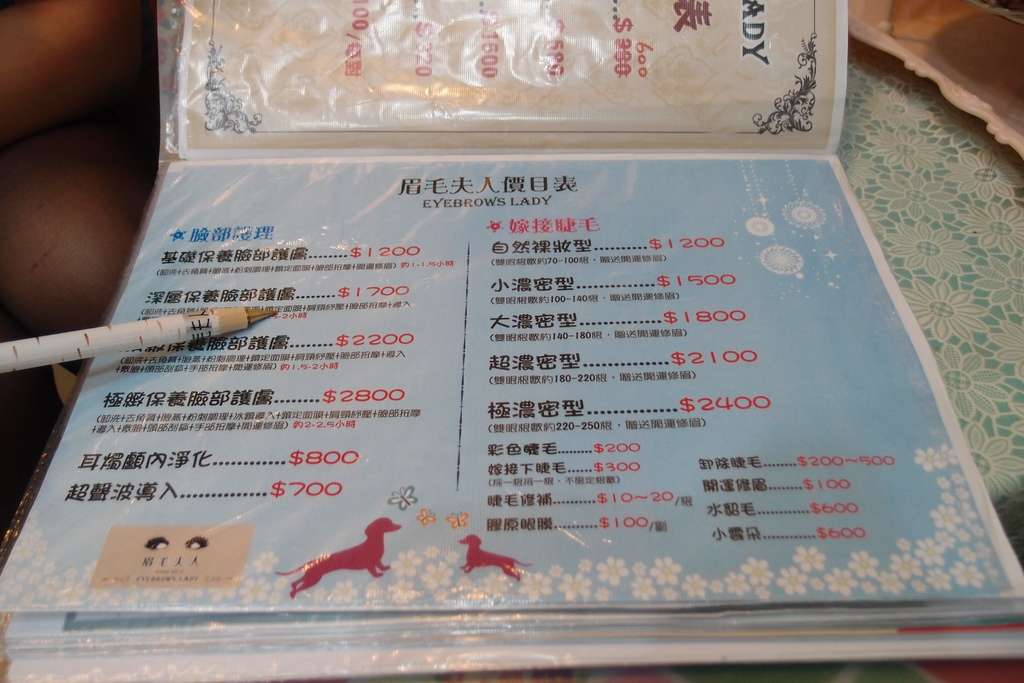 ADY
表
$ 990 600
$ 599
$ 1500
$ 320
眉毛夫人價目表
EYEBROWS LADY
臉部護理
基礎保養臉部護膚......$1200
(卸洗+去角質+臉蒸+粉刺調理+鎖定面膜+臉部按摩+開運修眉) 約1-1.5小時
深層保養臉部護膚........$1700
保養臉部護膚........$2200
(卸洗+去角質+臉蒸+粉刺調理+鎖定面膜+肩頸紓壓+臉部按摩+導入
+敷臉+頭部刮痧+手部按摩+開運修眉) 約1.5-2小時
極緻保養臉部護膚........$2800
(卸洗+去角質+臉蒸+粉刺調理+冰鎮導入+鎖定面膜+肩頸紓壓+臉部按摩
+導入+敷臉+頭部刮痧+手部按摩+開運修眉) 約2-2.5小時
耳燭顱內淨化............$800
超聲波導入..............$700
眉毛夫人
EYEBROWS LADY
嫁接睫毛
自然裸妝型.........$1200
(雙眼根數約70-100根,贈送開運修眉)
小濃密型............$1500
(雙眼根數約100-140根,贈送開運修眉)
大濃密型.............$1800
(雙眼根數約140-180根,贈送開運修眉)
超濃密型..............$2100
(雙眼根數約180-220根,贈送開運修眉)
極濃密型..............$2400
(雙眼根數約220-250根,贈送開運修眉)
彩色睫毛.........$200
嫁接下睫毛.......$300
(採一根接一根,不限定根數)
睫毛修補.........$10~20/根
膠原眼膜..........$100/副
卸除睫毛.......$200~500
開運修眉........$100
水貂毛..........$600
小雲朵............$600